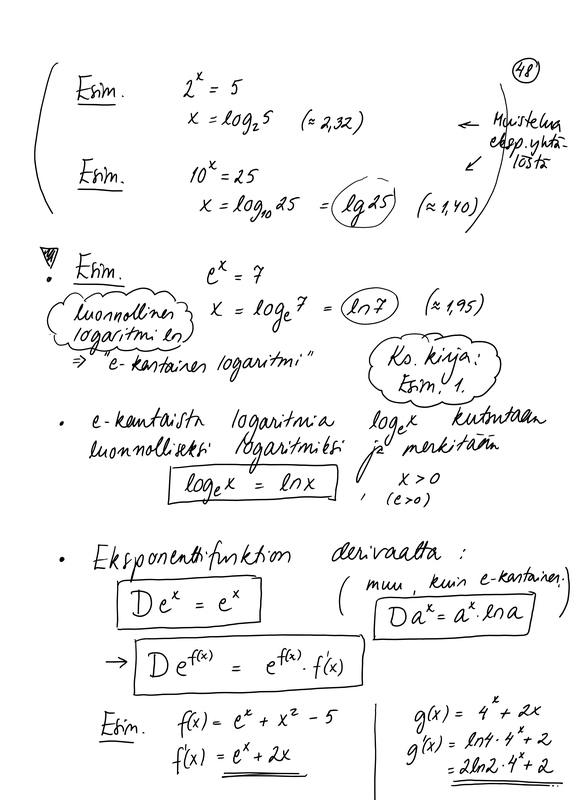 48
Esim. 2^x = 5
x = log₂5 (≈ 2,32)
← Muistelua
eksp.yhtä-
löstä
Esim. 10^x = 25
x = log₁₀ 25 = lg 25 (≈ 1,40)
! Esim. e^x = 7
x = logₑ 7 = ln 7 (≈ 1,95)
luonnollinen
logaritmi ln
⇒ "e-kantainen logaritmi"
Ks. kirja:
Esim. 1.
• e-kantaista logaritmia logₑx kutsutaan
luonnolliseksi logaritmiksi ja merkitään
logₑx = ln x , x > 0
(e > 0)
• Eksponenttifunktion derivaatta :
D e^x = e^x
( muu, kuin e-kantainen: )
D a^x = a^x · ln a
→ D e^f(x) = e^f(x) · f'(x)
Esim. f(x) = e^x + x² - 5
f'(x) = e^x + 2x
g(x) = 4^x + 2x
g'(x) = ln4 · 4^x + 2
= 2ln2 · 4^x + 2